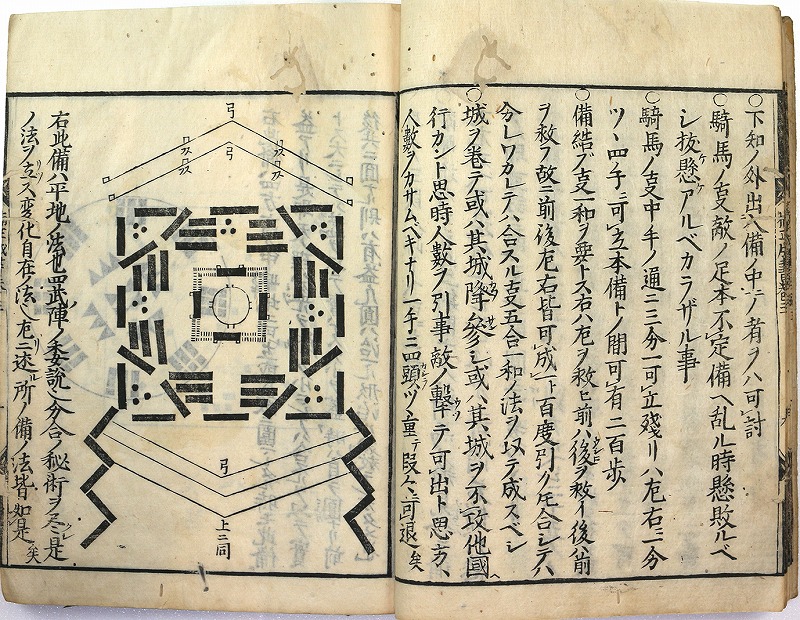 ○下知ノ外出ハ備ノ中ニテノ者ヲハ可討
○騎馬ノ支敵ノ足本不定備ヘ乱ル時懸敗ルベ
シ抜懸アルベカラザル事
○騎馬ノ支中手ノ通ニ三分一可立残リハ左右一分
ツヽ四手ニ可立本備トノ間可有二百歩
○備結ブ支一和ヲ要トス右ハ左ヲ救ヒ前ハ後ヲ救イ後ハ前
ヲ救ヲ故ニ前後左右皆可成一下百度引クモ合シテハ
分レワカレテハ合スル支五合一和ノ法ヲ以テ成スベシ
○城ヲ巻テ或ハ其城降参シ或ハ其城ヲ不攻他國ヘ
行カント思時人数ヲ引事敵ノ撃テ可出ト思方ヘ
人数ヲカサムベキナリ一手ニ四頭ツヽ重テ段々ニ可退矣
弓
弓
上ニ同
弓
右此備ハ平地ノ法也罡武陣ノ委説分合ノ秘術ヲ尽是
ノ法ヲ立ス変化自在法左ニ述ル所ノ備ノ法皆如是矣